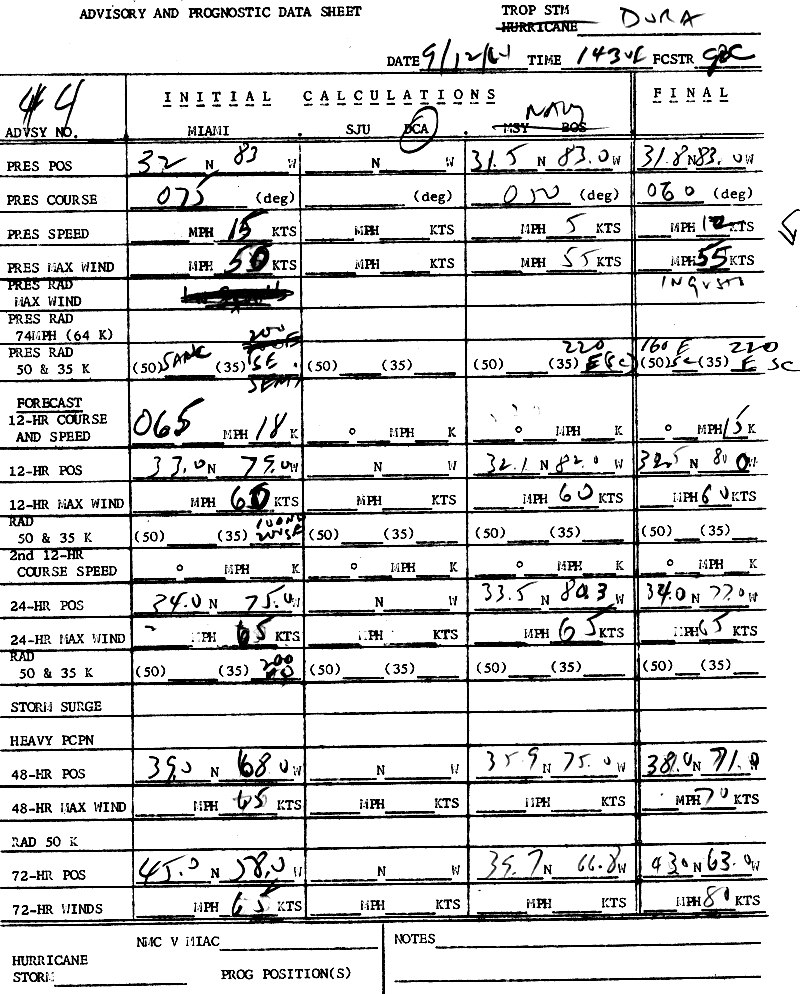 ADVISORY AND PROGNOSTIC DATA SHEET TROP STM HURRICANE DORA
DATE 9/12/64 TIME 1430Z FCSTR
44 INITIAL CALCULATIONS FINAL
NAVY
ADVSY NO. MIAMI SJU DCA MSY BOS
PRES POS 32 N 83 W N W 31.5 N 83.0 W 31.8 N 83.0 W
PRES COURSE 075 (deg) (deg) 050 (deg) 060 (deg)
PRES SPEED MPH 15 KTS MPH KTS MPH 5 KTS MPH 12 KTS
PRES MAX WIND MPH 50 KTS MPH KTS MPH 55 KTS MPH 55 KTS
PRES RAD MAX WIND IN GUSTS
PRES RAD
74MPH (64 K)
PRES RAD 200 220 160 E 220
50 & 35 K (50) SAME (35) SE (50) (35) (50) (35) E (SC) (50) SC (35) E SC
SEMI
FORECAST
12-HR COURSE
AND SPEED 065 MPH 18 K ° MPH K ° MPH K ° MPH 15 K
12-HR POS 33.0 N 79.0 W N W 32.1 N 82.0 W 32.5 N 80.0 W
12-HR MAX WIND MPH 60 KTS MPH KTS MPH 60 KTS MPH 60 KTS
RAD
50 & 35 K (50) (35) (50) (35) (50) (35) (50) (35)
2nd 12-HR
COURSE SPEED ° MPH K ° MPH K ° MPH K ° MPH K
24-HR POS 34.0 N 75.0 W N W 33.5 N 80.3 W 34.0 N 77.0 W
24-HR MAX WIND MPH 65 KTS MPH KTS MPH 65 KTS MPH 65 KTS
RAD 200
50 & 35 K (50) (35) (50) (35) (50) (35) (50) (35)
STORM SURGE
HEAVY PCPN
48-HR POS 39.0 N 68.0 W N W 35.9 N 75.0 W 38.0 N 71.0 W
48-HR MAX WIND MPH 65 KTS MPH KTS MPH KTS MPH 70 KTS
RAD 50 K
72-HR POS 45.0 N 58.0 W N W 39.7 N 66.8 W 43.0 N 63.0 W
72-HR WINDS MPH 65 KTS MPH KTS MPH KTS MPH 80 KTS
NMC V MIAC NOTES
HURRICANE
STORM PROG POSITION(S)